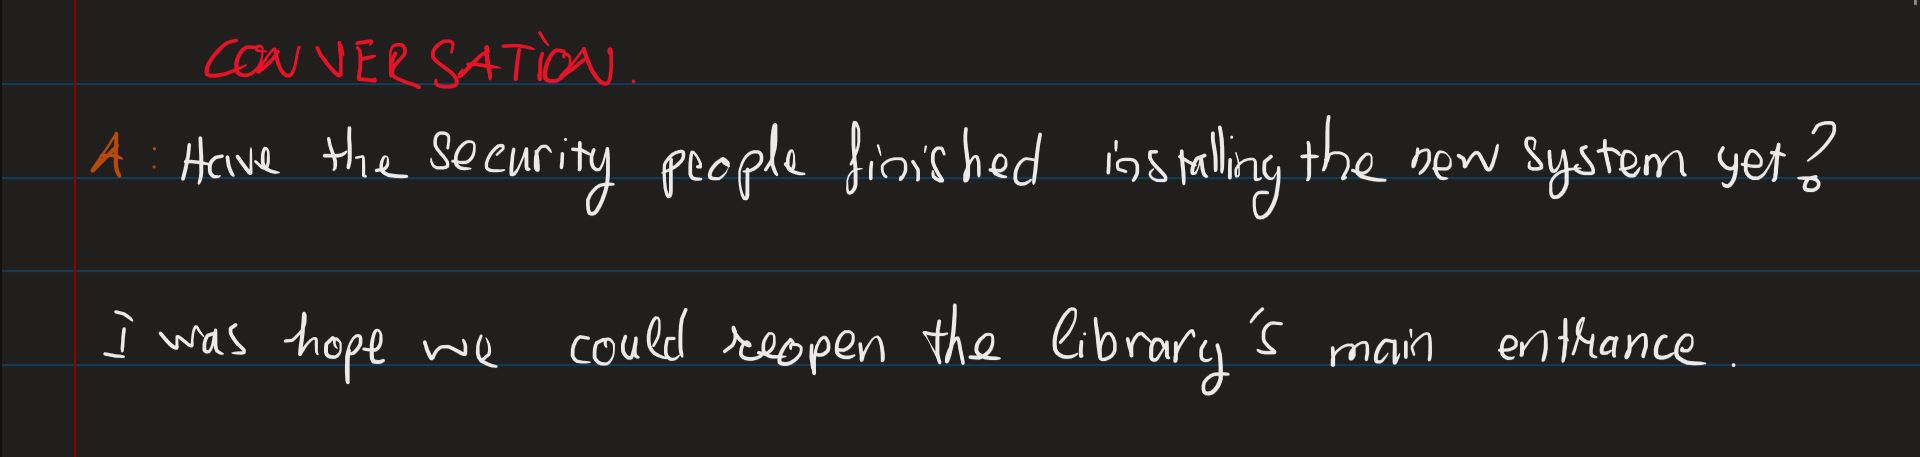 CONVERSATION.
A: Have the security people finished installing the new system yet?
I was hope we could reopen the library's main entrance.